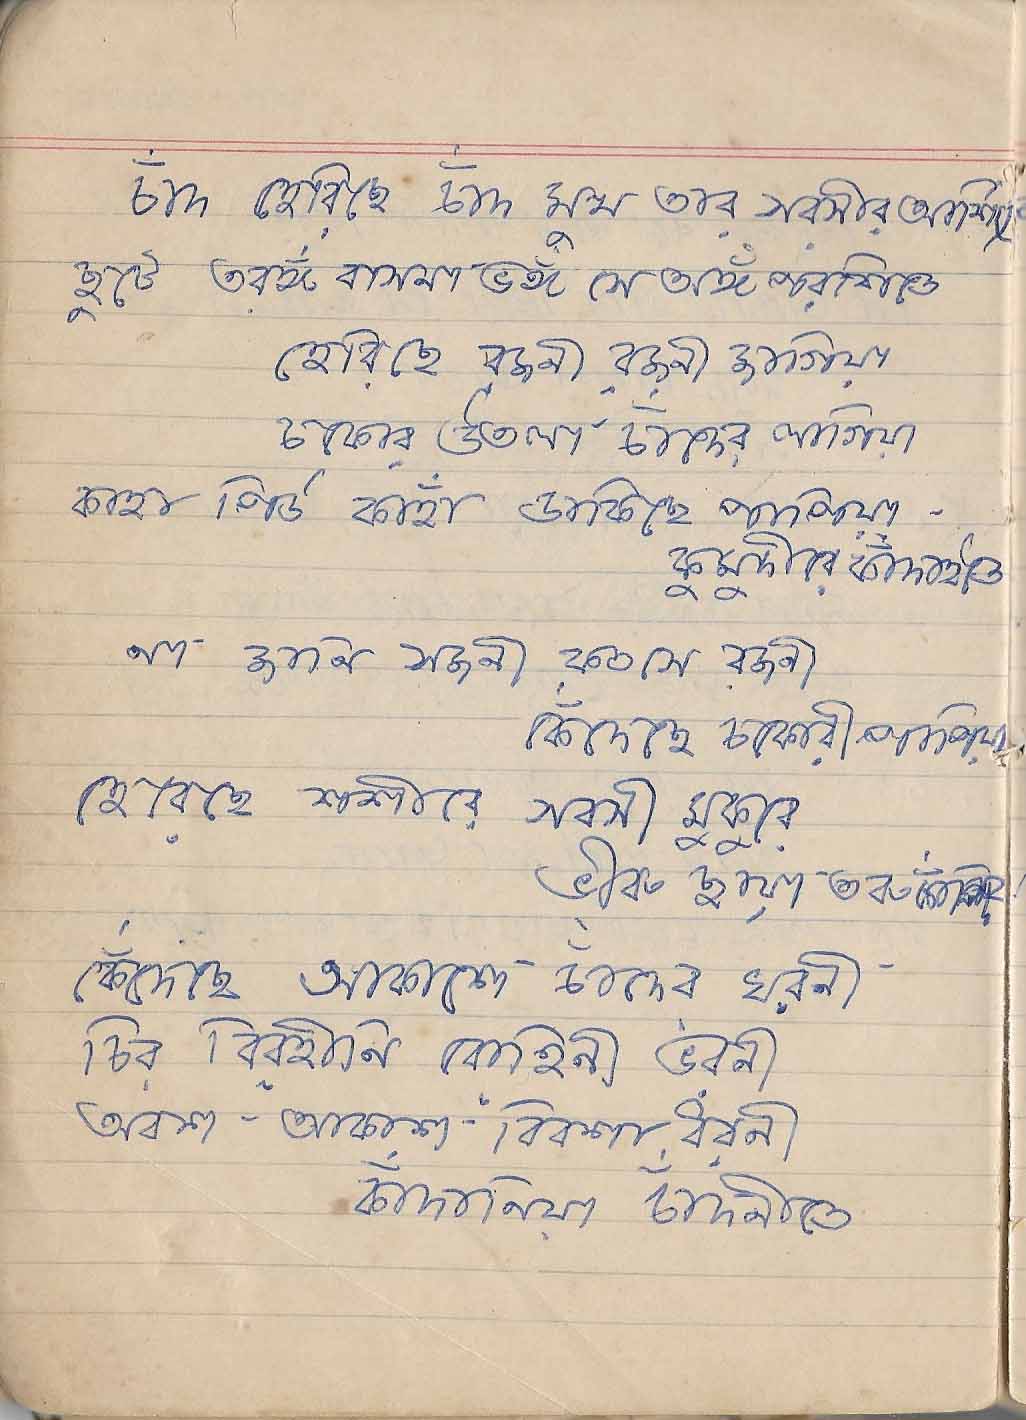 চাঁদ হেরিছে চাঁদ মুখ তার সরসীর আর্শিতে
ছুটে তরঙ্গ বাসনা ভঙ্গ সে অঙ্গ পরশিতে
হেরিছে রজনী রজনী জাগিয়া
চকোর উতলা চাঁদের লাগিয়া
কাহা পিউ কাহাঁ ডাকিছে পাপিয়া -
কুমুদীরে কাঁদাইতে
না জানি সজনী কত সে রজনী
কেঁদেছে চকোরী পাপিয়া
হেরেছে শশীরে সরসী মুকুরে
ভীরু ছায়া তরু কাঁপিয়া
কেঁদেছে আকাশে চাঁদের ঘরনী
চির বিরহীনি রোহিনী ভরনী
অবশ আকাশ বিবশা ধরনী
কাঁদানিয়া চাঁদনীতে